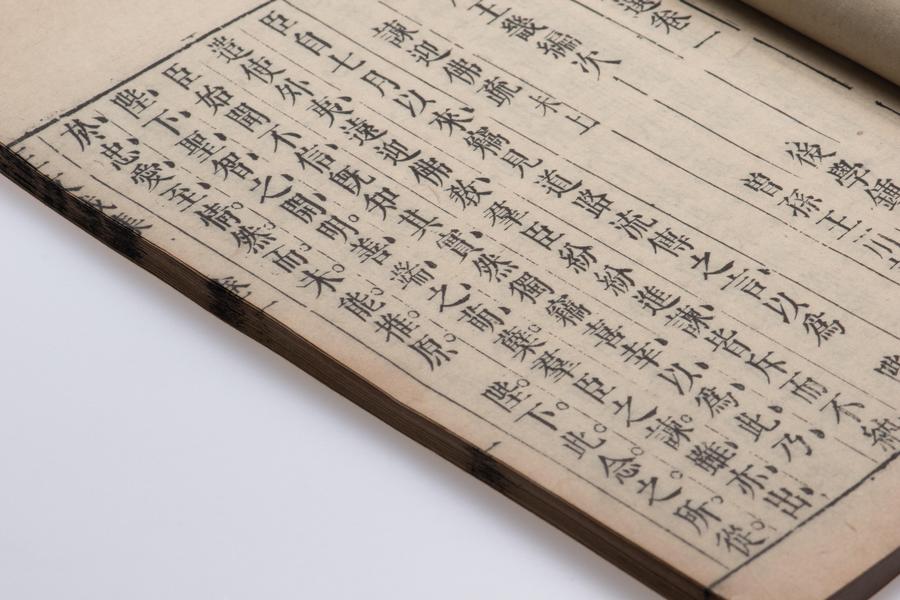 卷一
後學鍾
曾孫王川
王畿編次
諫迎佛疏 未上
臣自七月以來、竊見道路流傳之言、以爲
遣使外夷、遠迎佛敎、羣臣紛紛進諫、皆斥而不納
臣始聞不信、旣知其實、然獨竊喜幸、以爲此、乃、
陛、下、聖、智、之、開、明、善、端、之、萌、蘖。羣臣之諫。雖、亦、出、
於、忠、愛、至、情。然而未。能。推。原。陛。下。此。念。之。所。從。